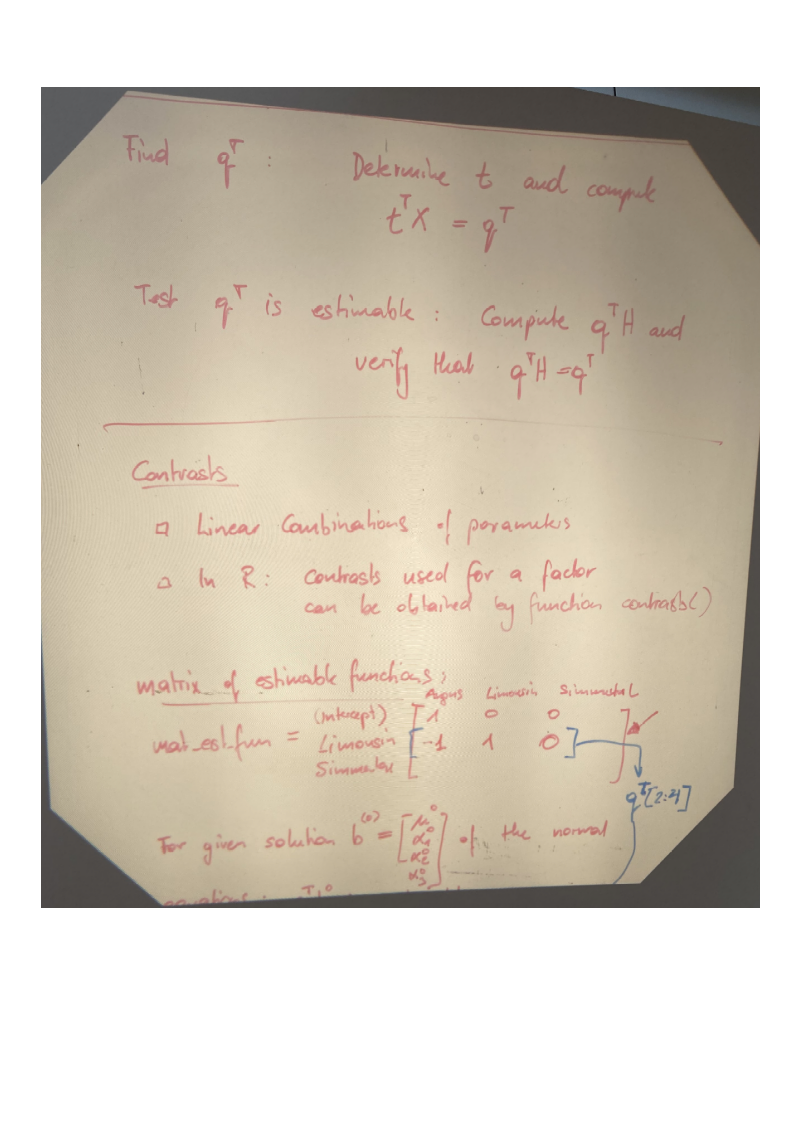 Find qᵀ : Determine t and compute
tᵀX = qᵀ
Test qᵀ is estimable : Compute qᵀH and
verify that qᵀH = qᵀ
Contrasts
□ Linear Combinations of parameters
□ In R : Contrasts used for a factor
can be obtained by function contrasts()
matrix of estimable functions :
Angus Limousin Simmental
(Intercept) 1 0 0
mat_est_fun = Limousin -1 1 0
Simmental
qᵀ[2:4]
For given solution b⁽⁰⁾ = [μ⁰ α₁⁰ α₂⁰ α₃⁰] of the normal
equations :